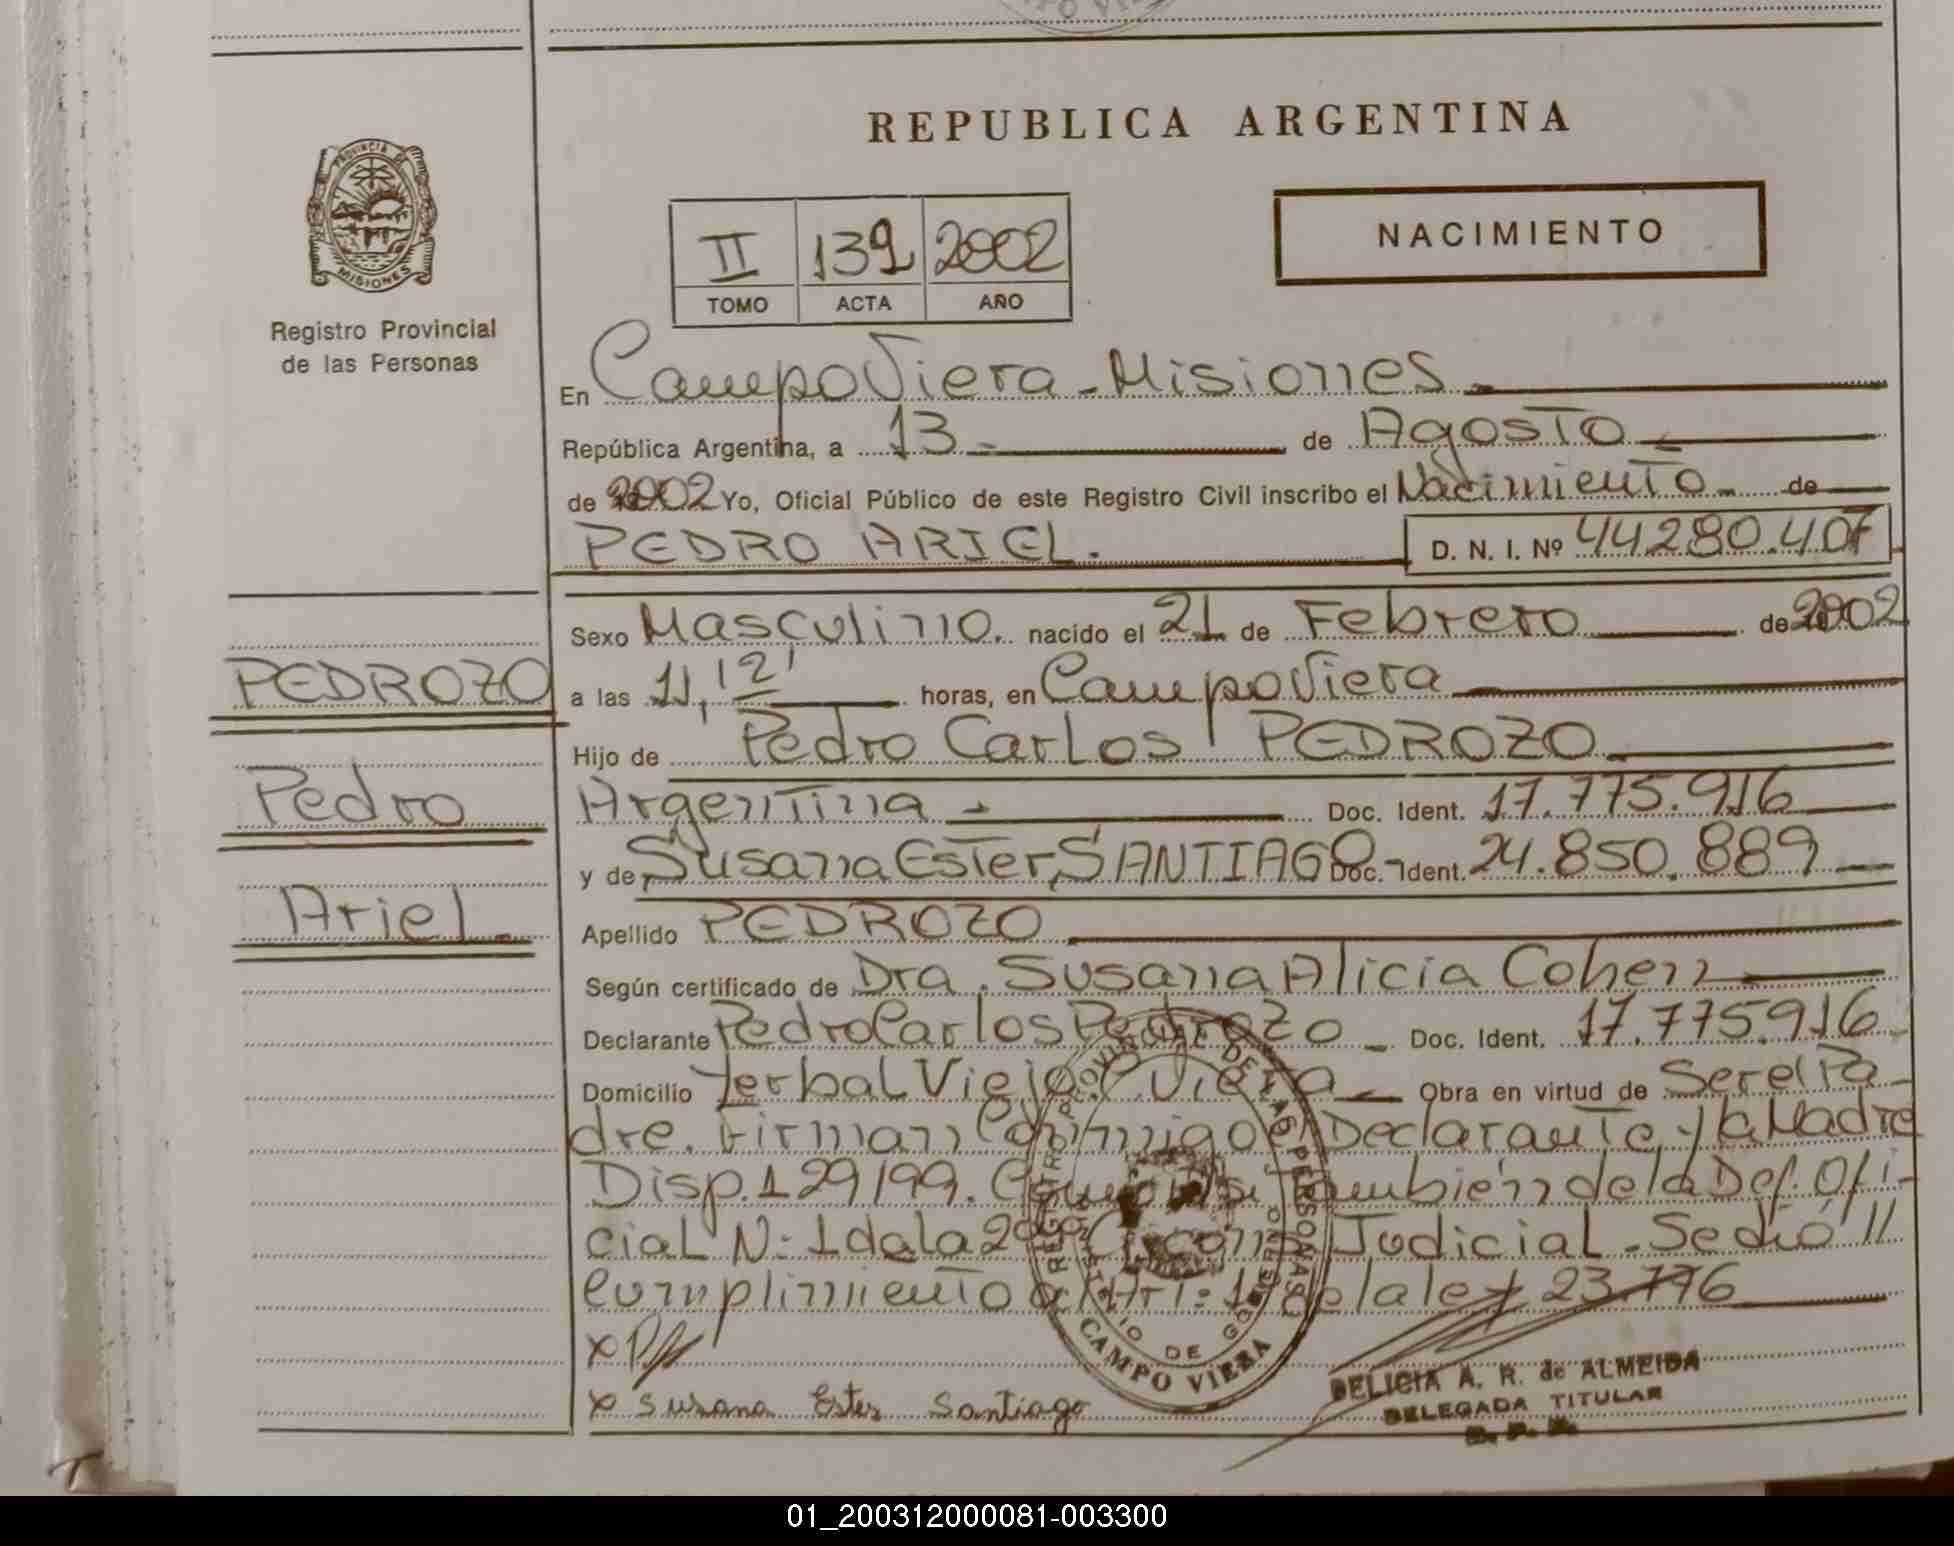 REPUBLICA ARGENTINA
PROVINCIA DE MISIONES
Registro Provincial
de las Personas
II 139 2002
TOMO ACTA AÑO
NACIMIENTO
En Campo Viera - Misiones
República Argentina, a 13 de Agosto
de 2002 Yo, Oficial Público de este Registro Civil inscribo el Nacimiento de
PEDRO ARIEL. D. N. I. Nº 44280.407
Sexo Masculino. nacido el 21 de Febrero de 2002
a las 11,12' horas, en Campo Viera
Hijo de Pedro Carlos PEDROZO
Argentina - Doc. Ident. 17.775.916
y de Susana Ester, SANTIAGO Doc. Ident. 24.850.889
Apellido PEDROZO
Según certificado de Dra. Susana Alicia Cohen
Declarante Pedro Carlos Pedrozo Doc. Ident. 17.775916
Domicilio Yerbal Viejo, Viera Obra en virtud de Ser el Pa-
dre. Firman Conmigo el Declarante y la Madre
Disp. 129/99. también de la Def. Ofi-
cial N: 1 de la 2º Judicial. Se dió
Cumplimiento al Art: 1 de la ley 23.776
x Susana Ester Santiago
PEDROZO
Pedro
Ariel
REGISTRO PROVINCIAL DE LAS PERSONAS
MINISTERIO DE GOBIERNO
CAMPO VIERA
DELICIA A. R. de ALMEIDA
DELEGADA TITULAR
01_200312000081-003300